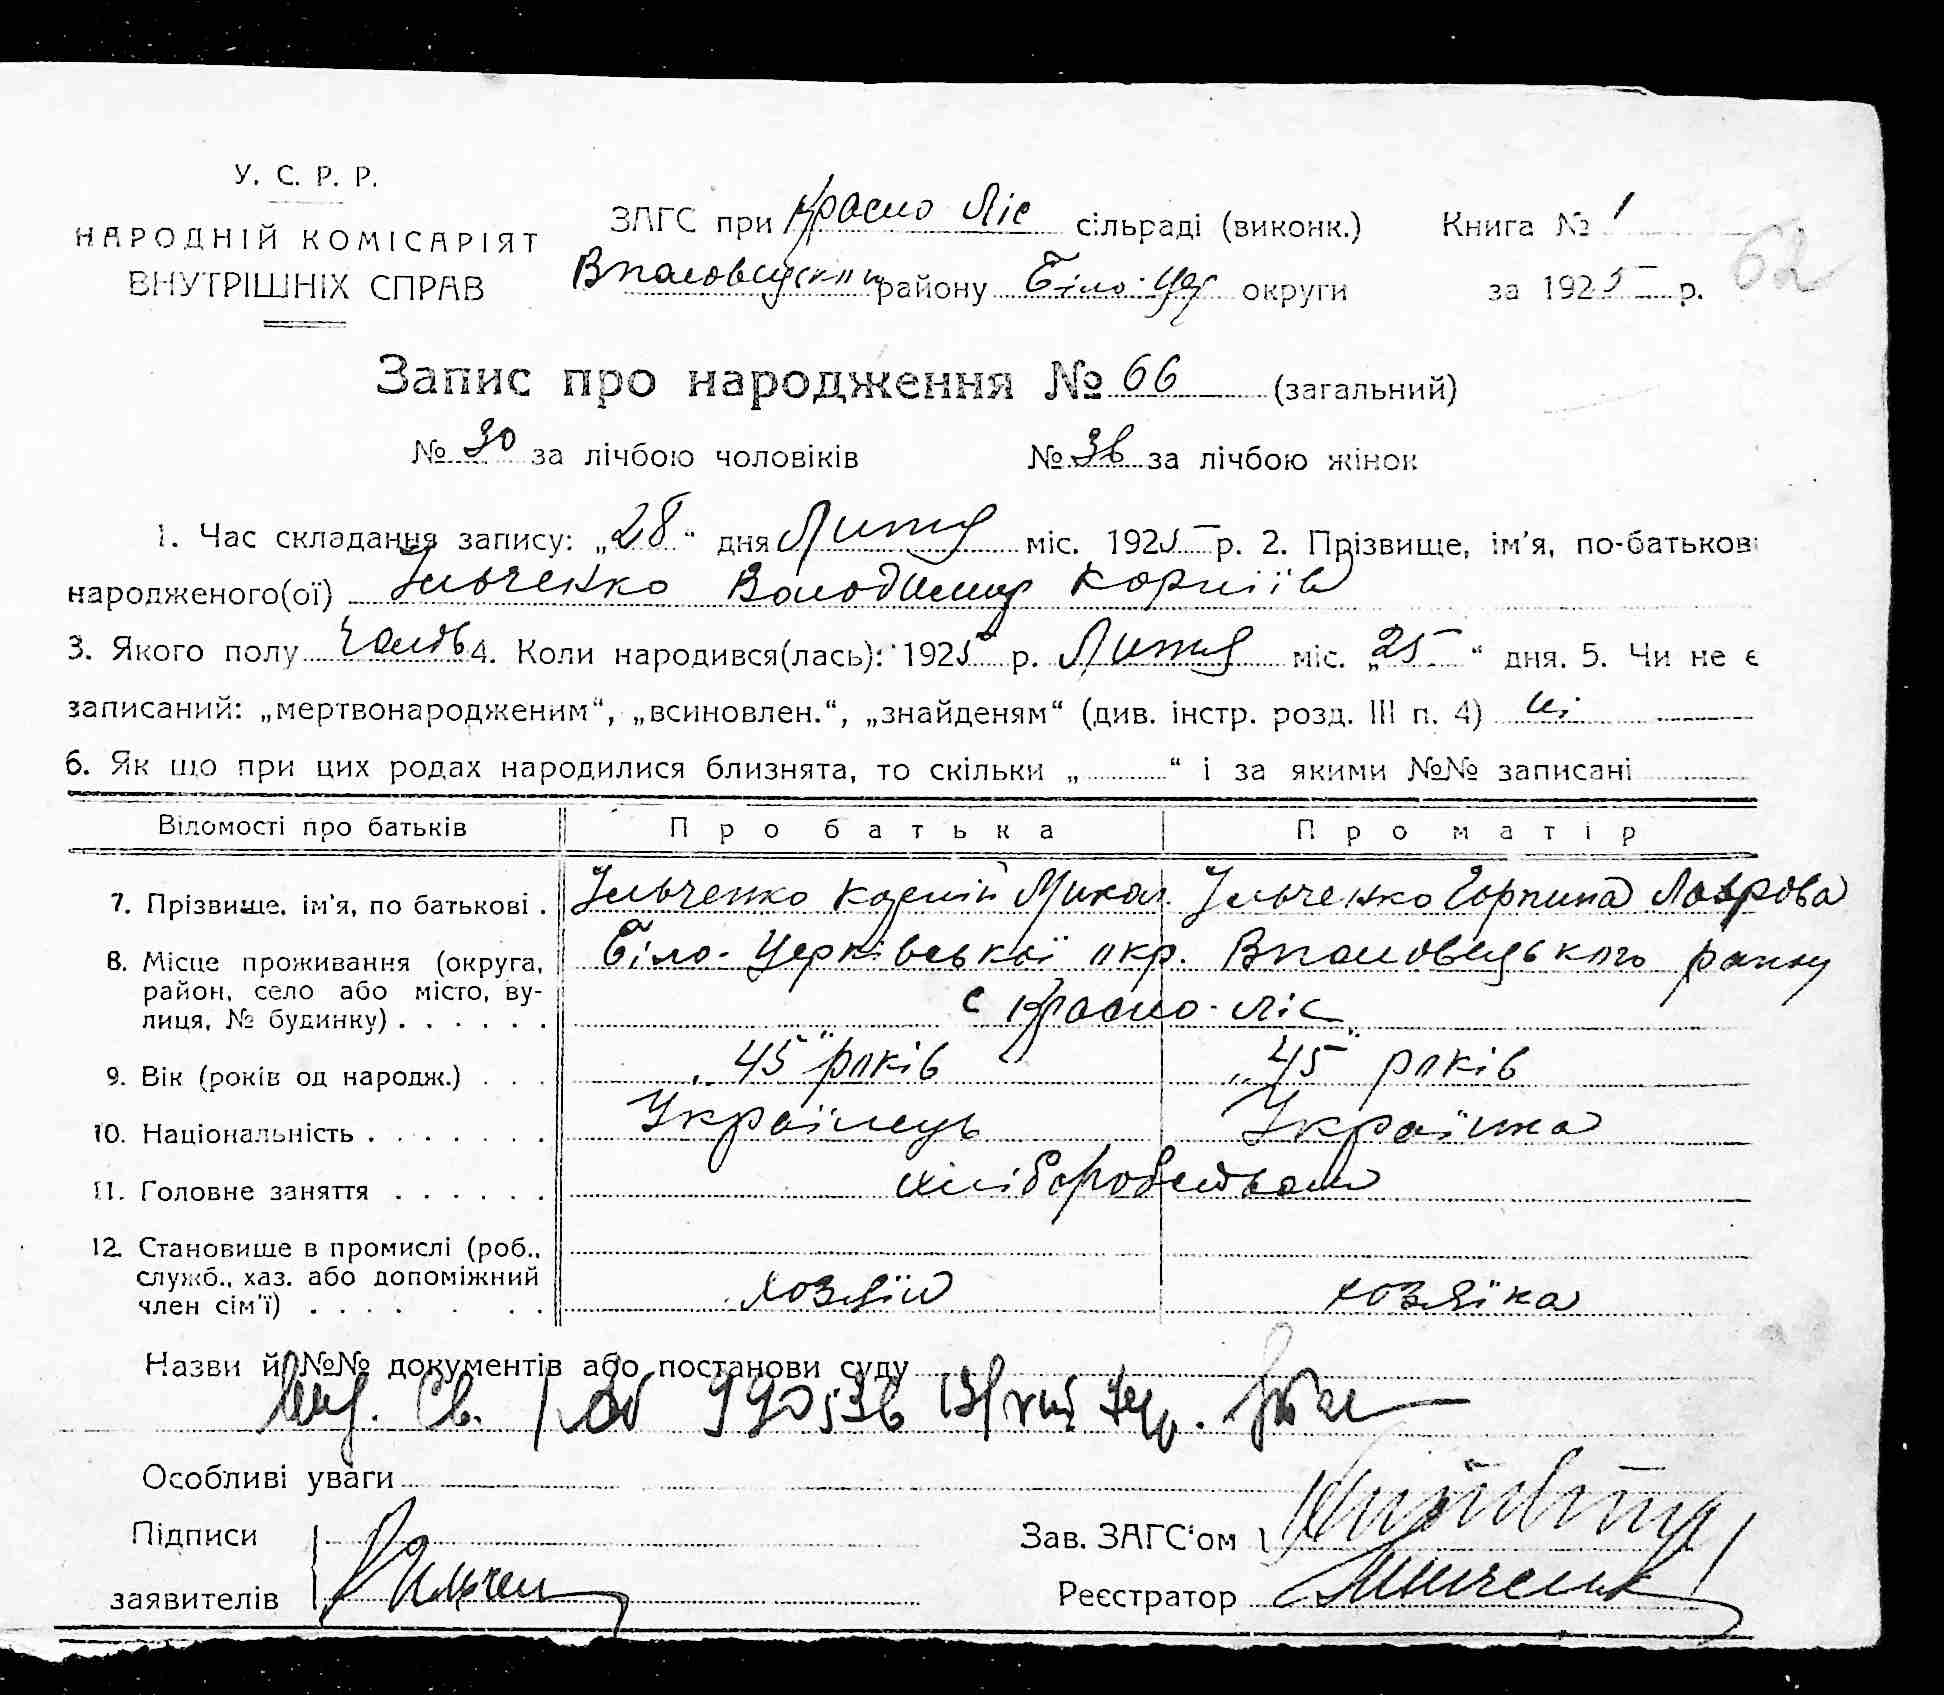 У. С. Р. Р.
НАРОДНІЙ КОМІСАРІЯТ
ВНУТРІШНІХ СПРАВ
ЗАГС при Красно Ліс сільраді (виконк.) Книга № 1
району Біло-Цер округи за 1925 р.
62
Запис про народження № 66 (загальний)
№ 30 за лічбою чоловіків № 36 за лічбою жінок
1. Час складання запису: „28“ дня Лютя міс. 1925 р. 2. Прізвище, ім'я, по-батькові
народженого(ої) Ільченко Володимир Корніїв
3. Якого полу чолов 4. Коли народився(лась): 1925 р. Лютя міс. „25“ дня. 5. Чи не є
записаний: „мертвонародженим“, „всиновлен.“, „знайденям“ (див. інстр. розд. III п. 4) ні
6. Як що при цих родах народилися близнята, то скільки „ “ і за якими №№ записані
Відомості про батьків Про батька Про матір
7. Прізвище, ім'я, по батькові . Ільченко Корній Микол. Ільченко Горпина Лаврова
8. Місце проживання (округа, Біло-Церківської окр. району
район, село або місто, ву- с Красно-Ліс
лиця, № будинку) . . . . . .
9. Вік (років од народж.) . . . „45“ років „45“ років
10. Національність . . . . . . . Українець Українка
11. Головне заняття . . . . . . хліборобством
12. Становище в промислі (роб.,
служб., хаз. або допоміжний хозяїн хозяїка
член сім'ї) . . . . . . .
Назви й №№ документів або постанови суду
Особливі уваги
Підписи Зав. ЗАГС'ом
заявителів Ільчен Реєстратор